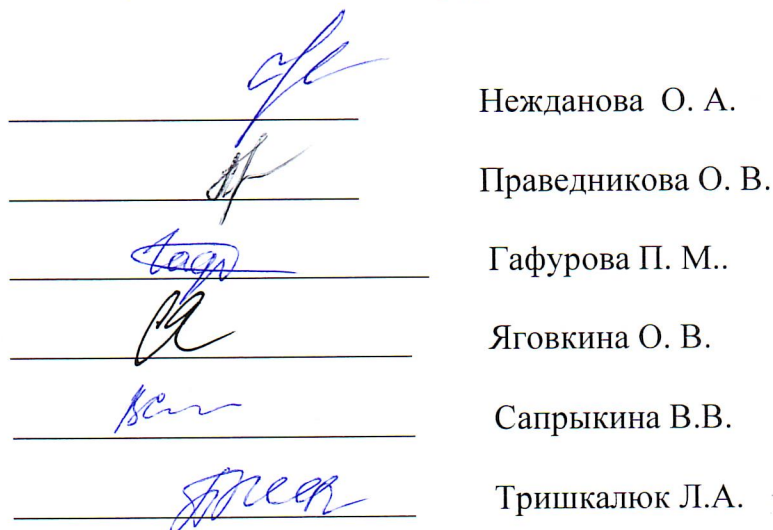 Нежданова О. А.
Праведникова О. В.
Гафурова П. М..
Яговкина О. В.
Сапрыкина В.В.
Тришкалюк Л.А.